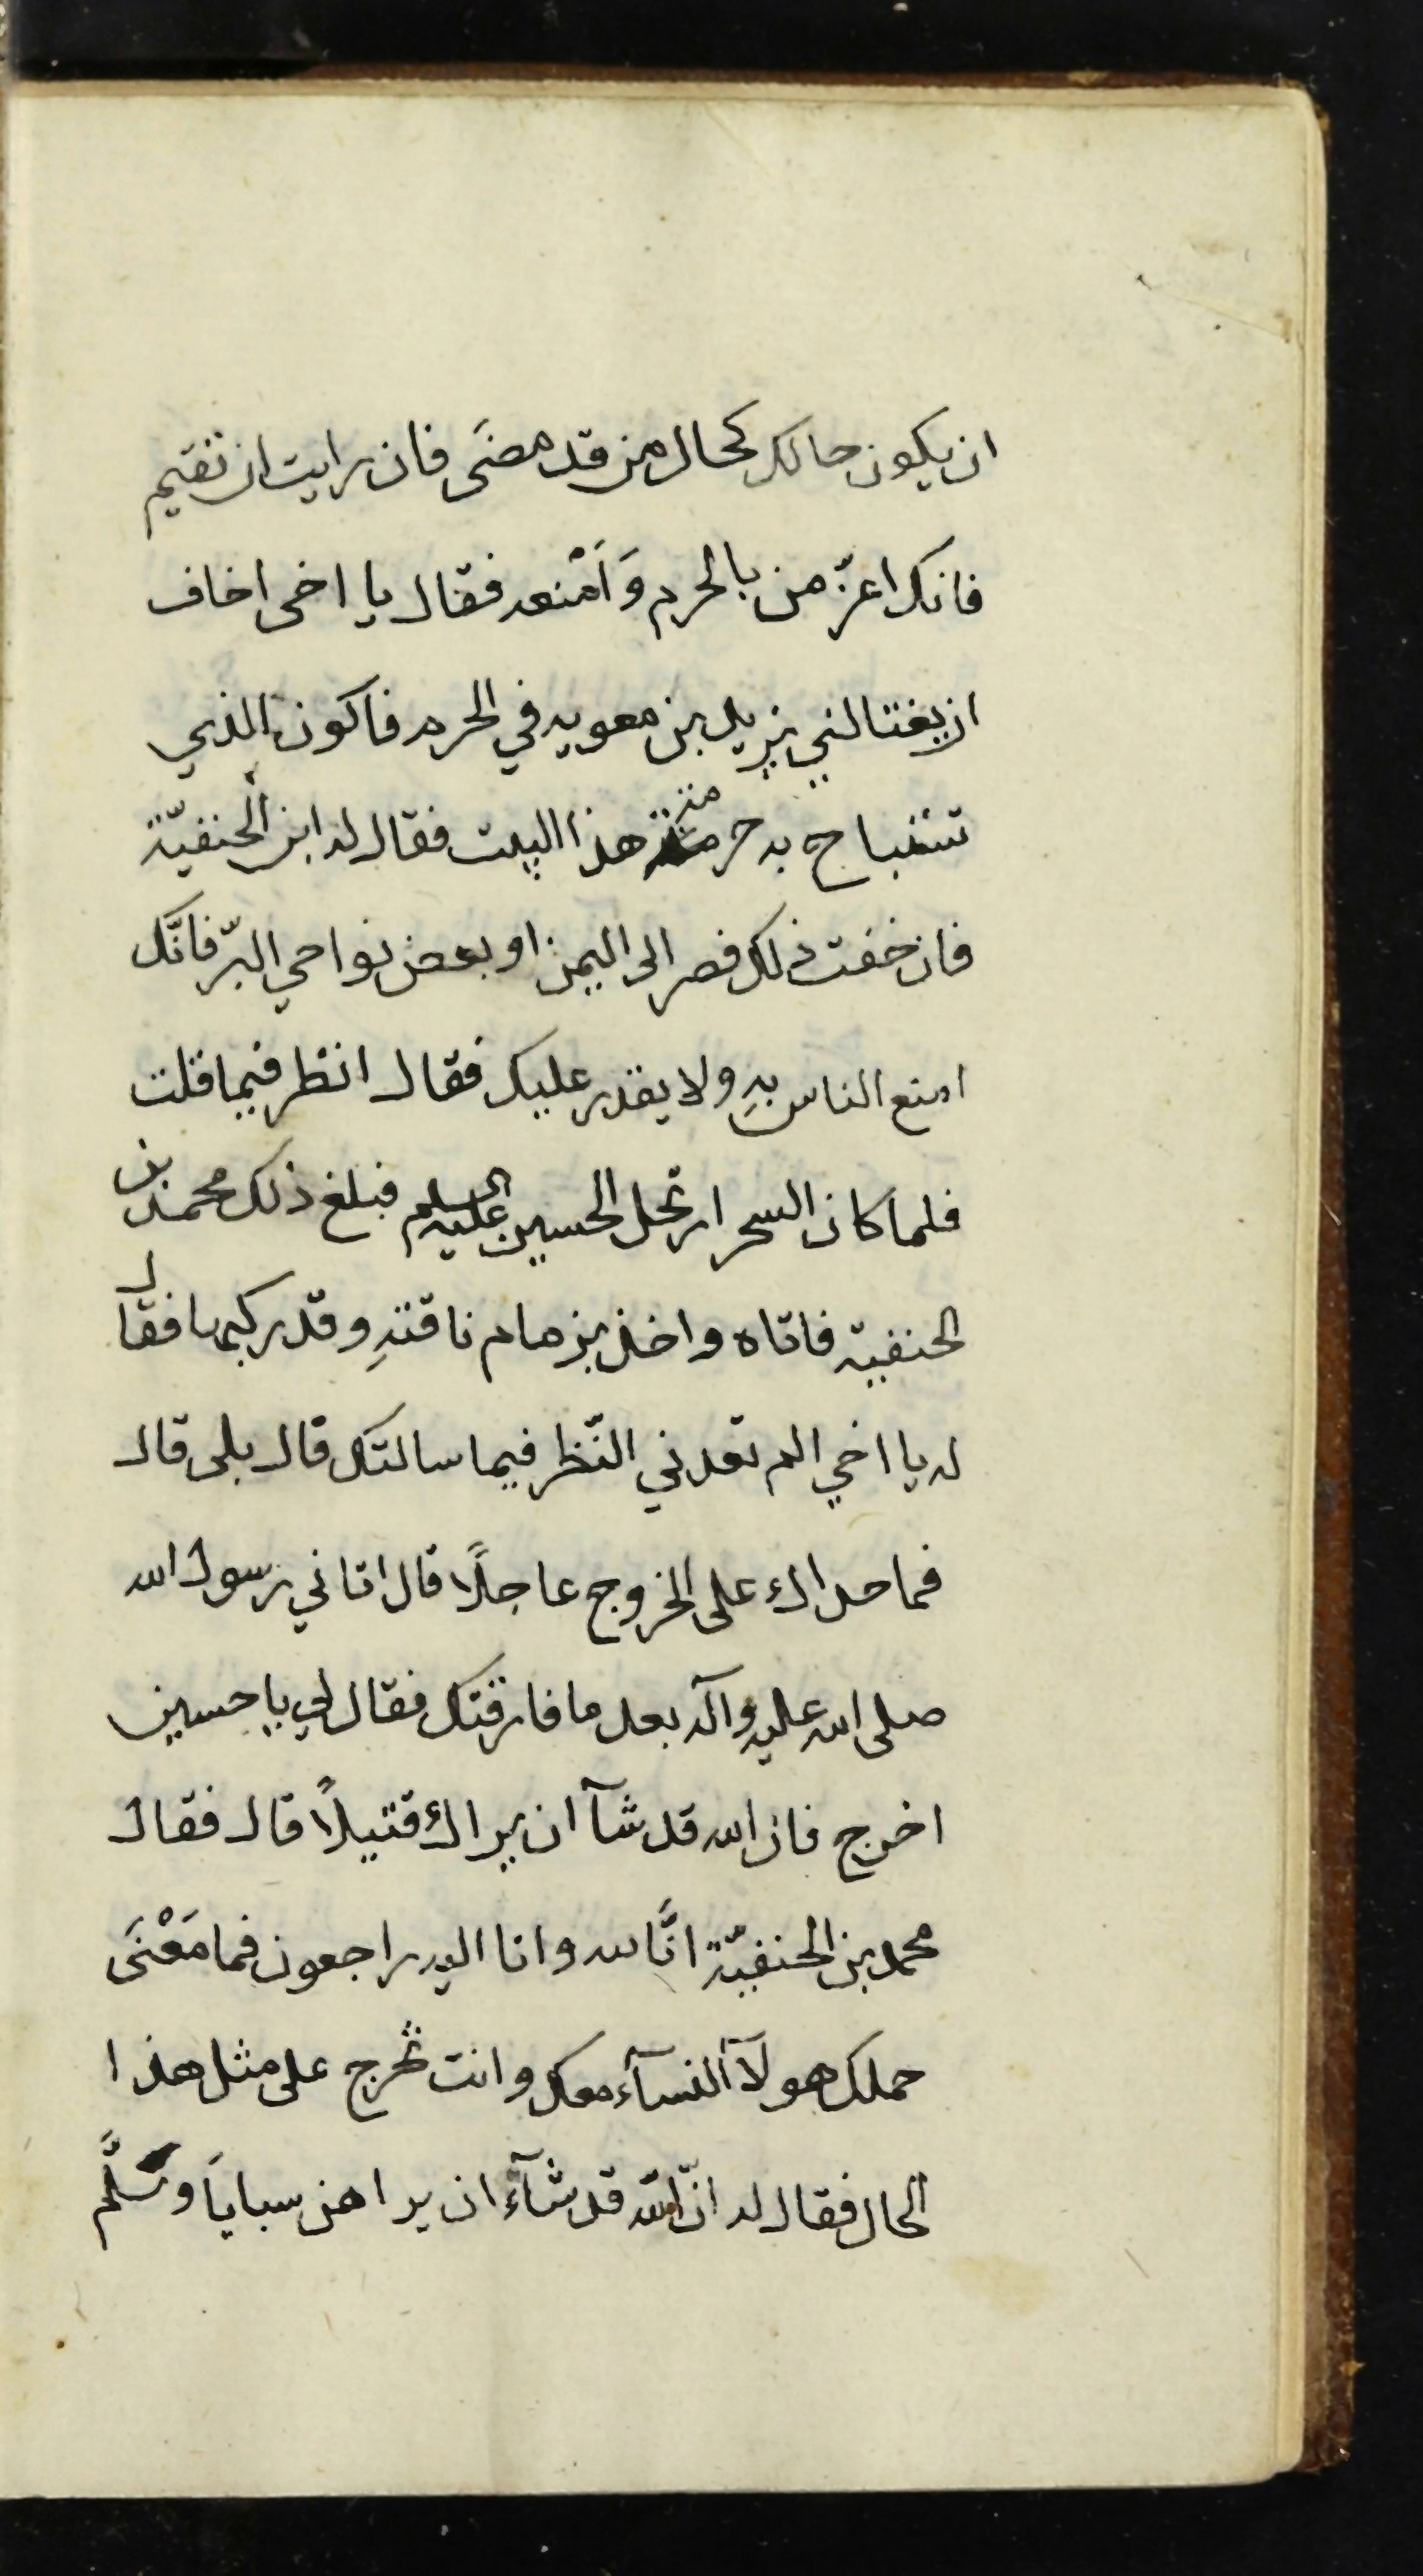 ان يكون حالك كحال من قد مضَى فان رايت ان تقيم
فانك اعزّ من بالحرم وَاَمْنعه فقال يا اخى اخاف
ان يغتالني يزيد بن معويه في الحرم فاكون الذي
تستباح به حرمة هذا البيت فقال له ابن الحنفيّة
فان خفت ذلك فصر الى اليمن او بعض نواحي البرّ فانَّك
امنع الناس بهِ ولا يقدر عليك فقال انظر فيما قلت
فلما كان السحر ارتحل الحسين عليه السلم فبلغ ذلك محمد بن
الحنفيه فاتاه واخذ بزمام ناقتهِ وقد ركبها فقال
له يا اخي الم تعدني النّظر فيما سالتك قال بلى قال
فما حداك على الخروج عاجلًا قال اتاني رسول الله
صلى الله عليه وآله بعد ما فارقتك فقال لي يا حسين
اخرج فان الله قد شآ ان يراك قتيلاً قال فقال
محمد بن الحنفيّة انَّا لله وانا اليه راجعون فما مَعْنَى
حملك هولآ النسآء معك وانت تخرج على مثل هذا
الحال فقال له انّ الله قد شآء ان يراهن سبايَا وسَلَّم